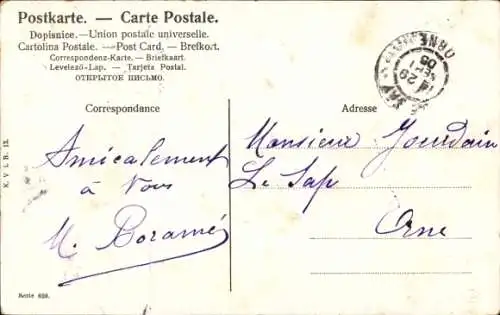 Postkarte. — Carte Postale.
Dopisnice. — Union postale universelle.
Cartolina Postale. — Post Card. — Brefkort.
Correspondenz-Karte. — Briefkaart.
Levelező-Lap. — Tarjeta Postal.
ОТКРЫТОЕ ПИСЬМО.
Correspondance
Amicalement
à Vous
M. Boramé
Adresse
Monsieur Jourdain
Le Sap
Orne
ORNE
29
K. V i. B. 12.
Serie 693.